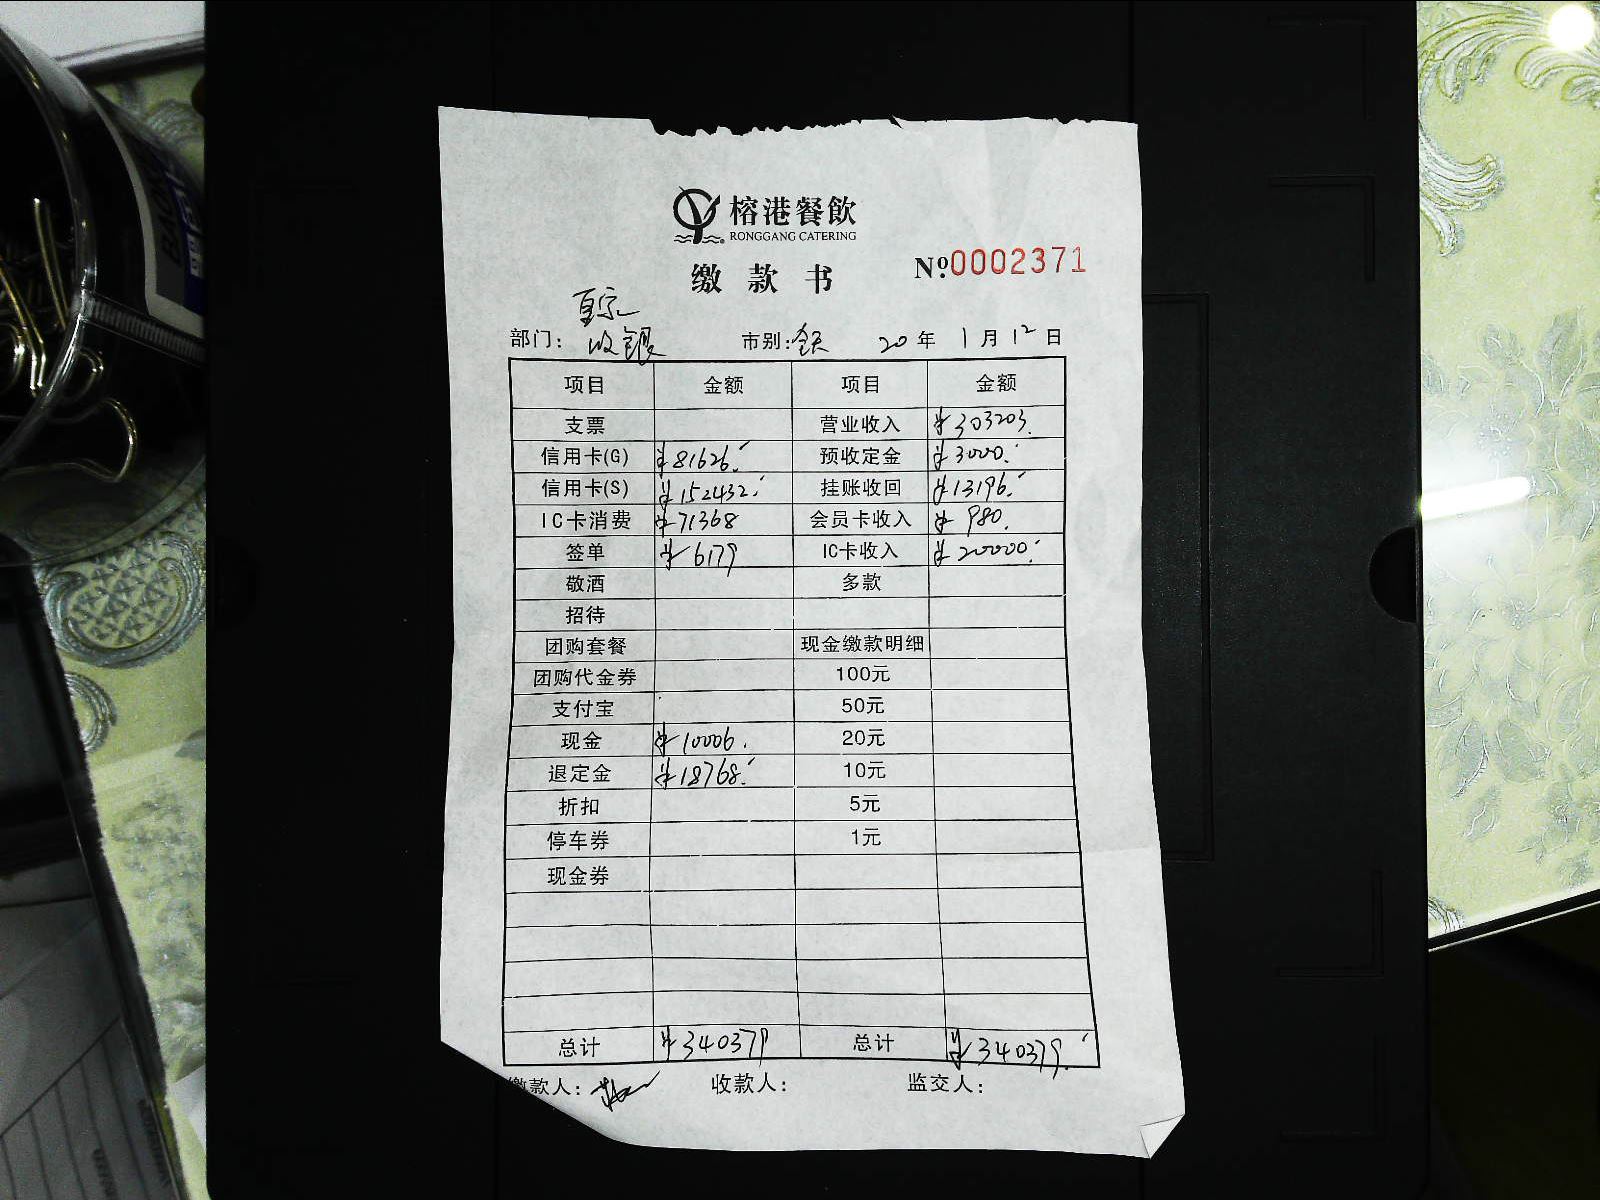 榕港餐飲
RONGGANG CATERING
缴款书
Nº:0002371
部门: 收银 市别: 全天 20年 1月 12日
项目 金额 项目 金额
支票 营业收入 ¥303203.
信用卡(G) ¥81626. 预收定金 ¥3000.
信用卡(S) ¥152432. 挂账收回 ¥13196.
IC卡消费 ¥71368 会员卡收入 ¥980.
签单 ¥6179 IC卡收入 ¥20000.
敬酒 多款
招待
团购套餐 现金缴款明细
团购代金券 100元
支付宝 50元
现金 ¥10006. 20元
退定金 ¥18768. 10元
折扣 5元
停车券 1元
现金券
总计 ¥340379 总计 ¥340379.
缴款人: 收款人: 监交人: